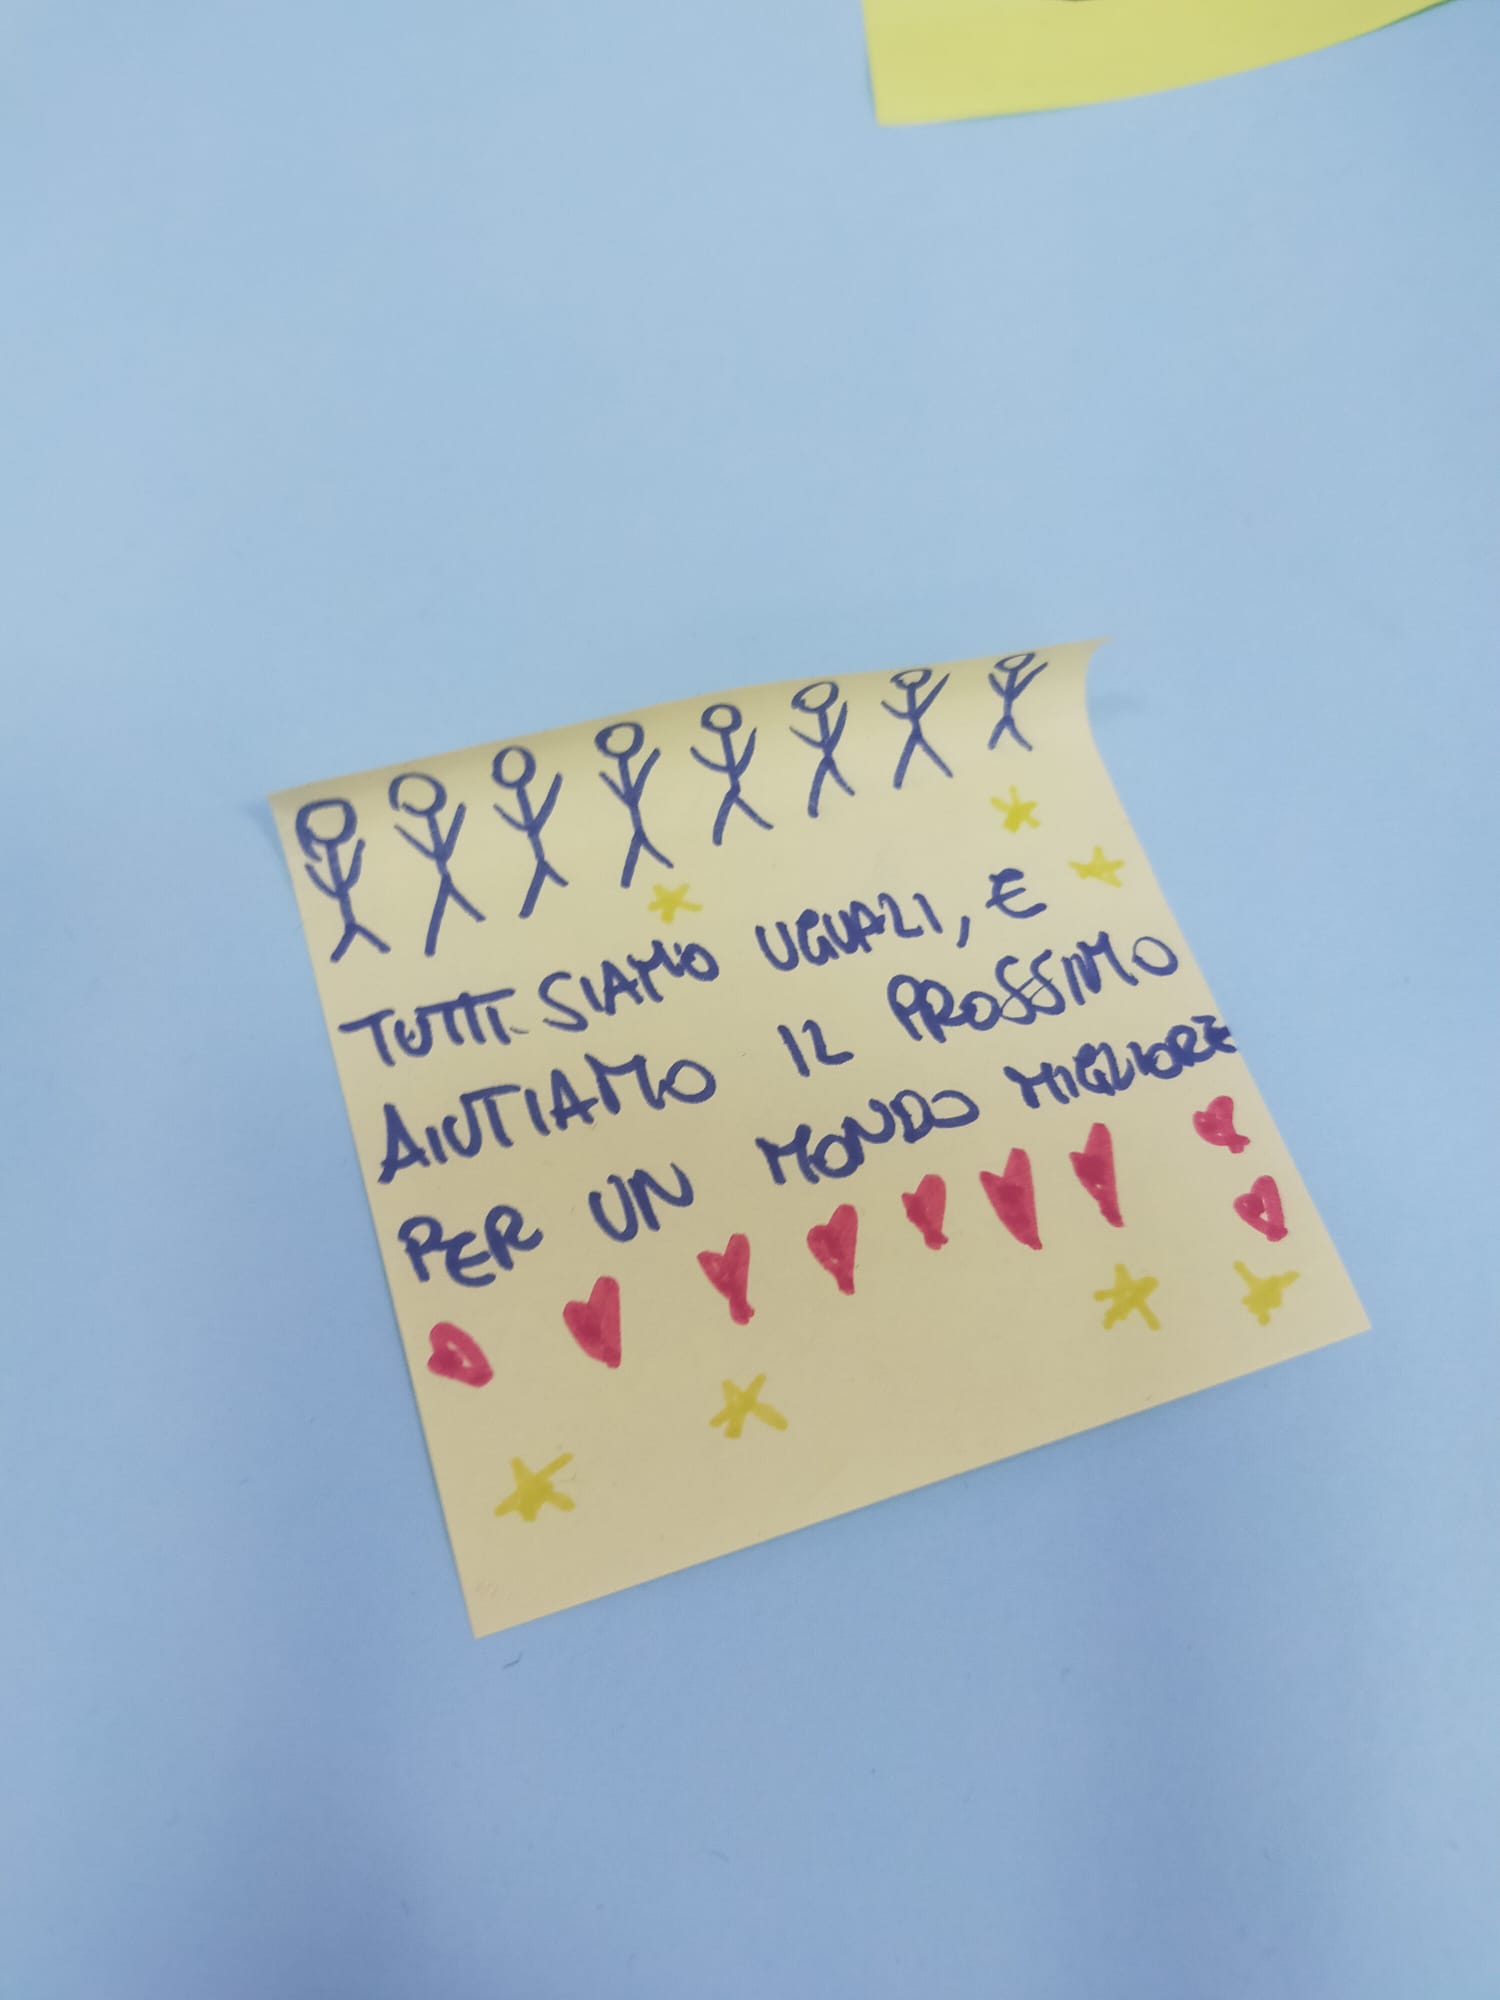 TUTTI SIAMO UGUALI, E
AIUTIAMO IL PROSSIMO
PER UN MONDO MIGLIORE